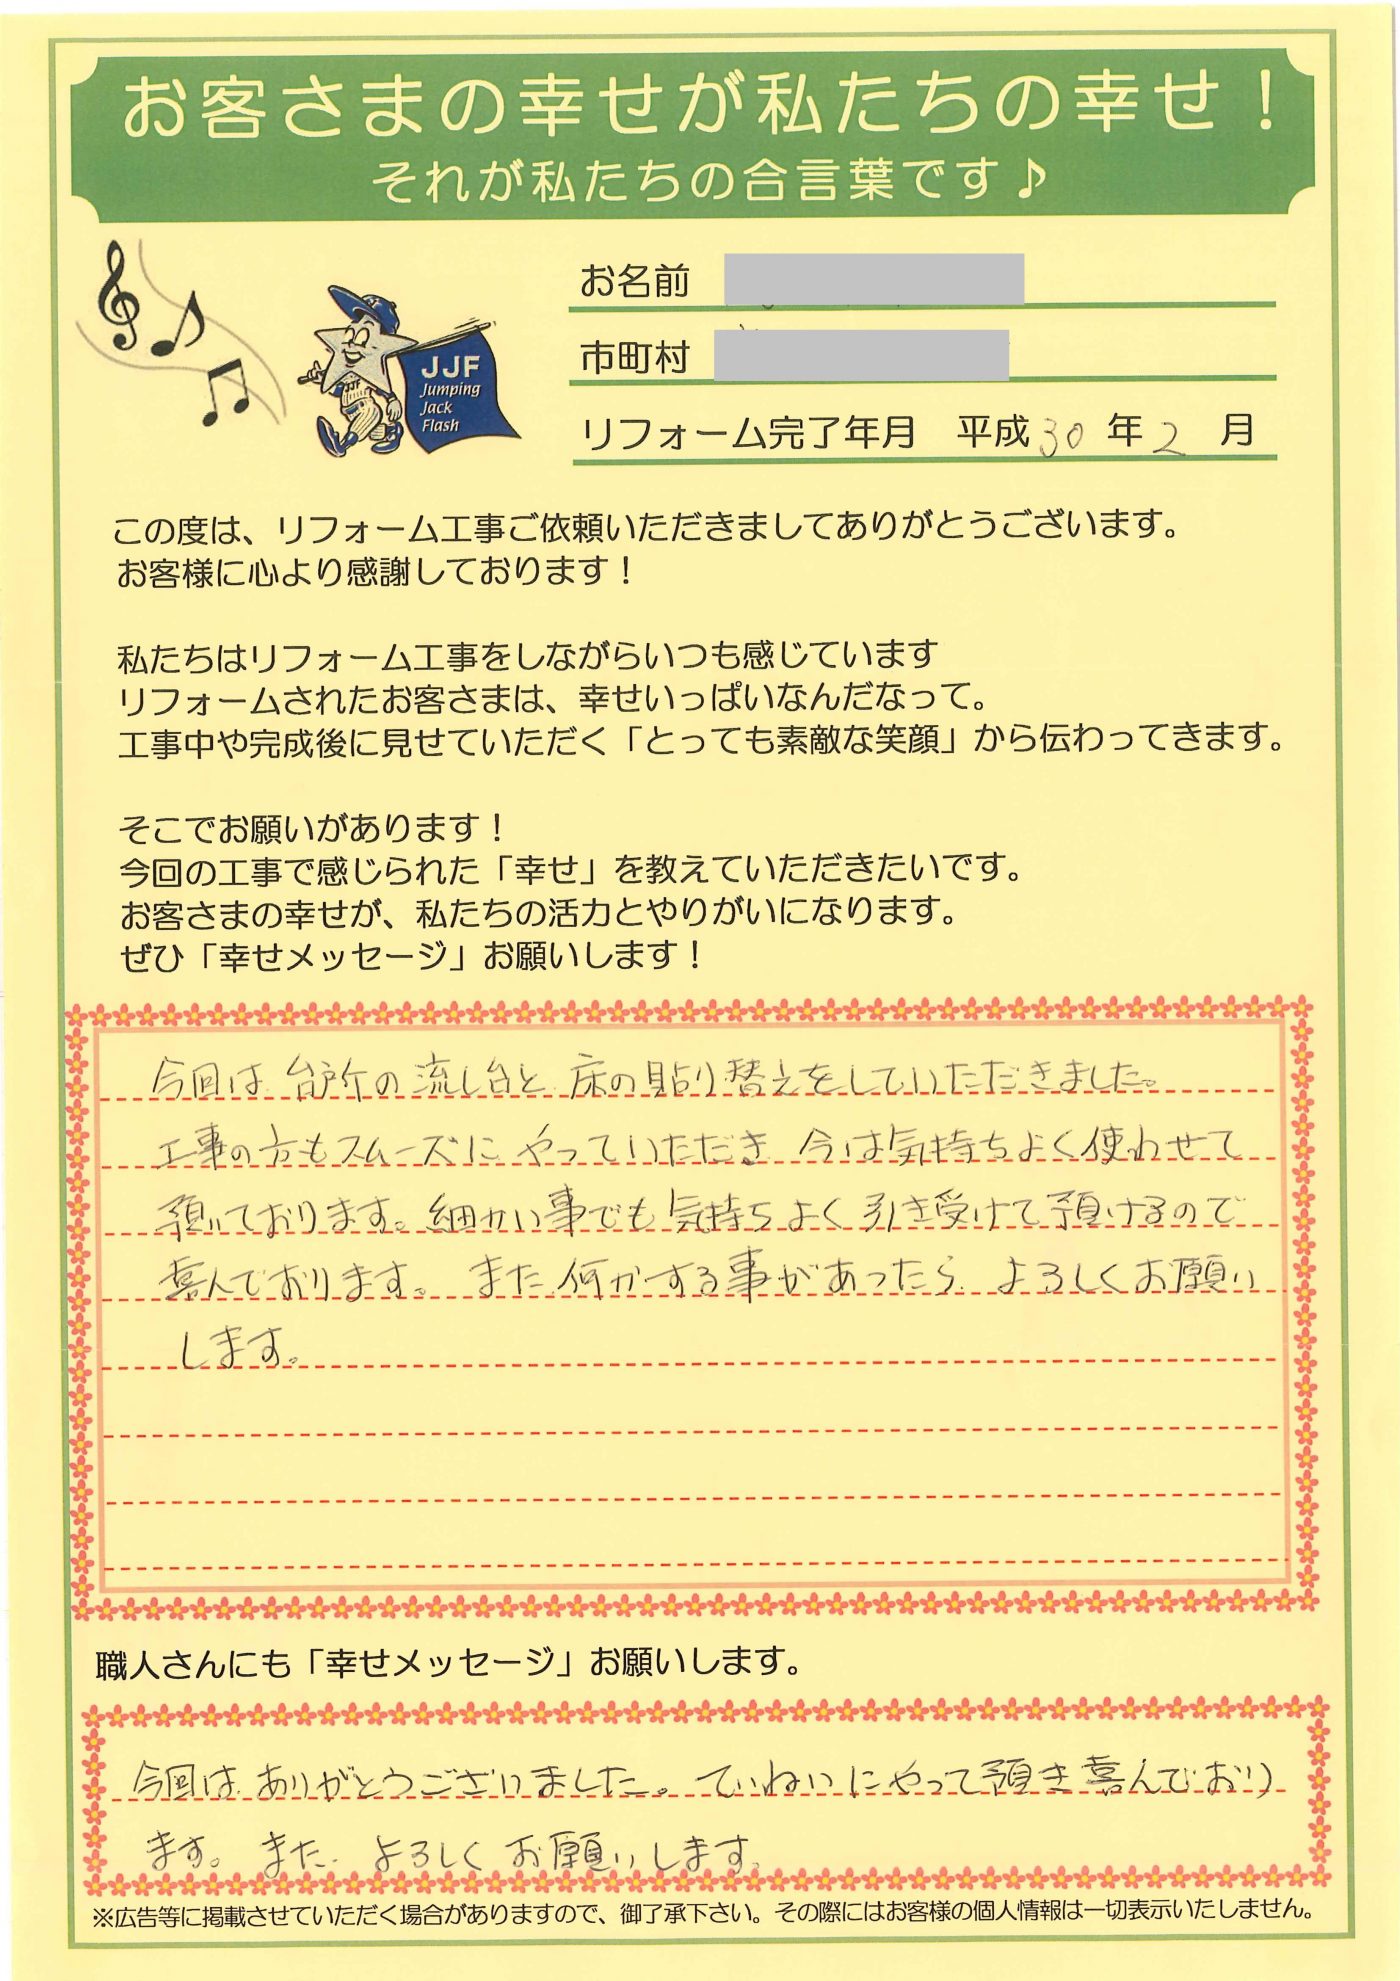 お客さまの幸せが私たちの幸せ！
それが私たちの合言葉です♪
お名前
市町村
リフォーム完了年月 平成30年2月
JJF
Jumping
Jack
Flash
JJF
この度は、リフォーム工事ご依頼いただきましてありがとうございます。
お客様に心より感謝しております！
私たちはリフォーム工事をしながらいつも感じています
リフォームされたお客さまは、幸せいっぱいなんだなって。
工事中や完成後に見せていただく「とっても素敵な笑顔」から伝わってきます。
そこでお願いがあります！
今回の工事で感じられた「幸せ」を教えていただきたいです。
お客さまの幸せが、私たちの活力とやりがいになります。
ぜひ「幸せメッセージ」お願いします！
今回は、台所の流し台と、床の貼り替えをしていただきました。
工事の方もスムーズにやっていただき、今は気持ちよく使わせて
頂いております。細かい事でも気持ちよく引き受けて頂けるので
喜んでおります。また何かする事があったら、よろしくお願い
します。
職人さんにも「幸せメッセージ」お願いします。
今回は、ありがとうございました。ていねいにやって頂き喜んでおり
ます。また、よろしくお願いします。
※広告等に掲載させていただく場合がありますので、御了承下さい。その際にはお客様の個人情報は一切表示いたしません。